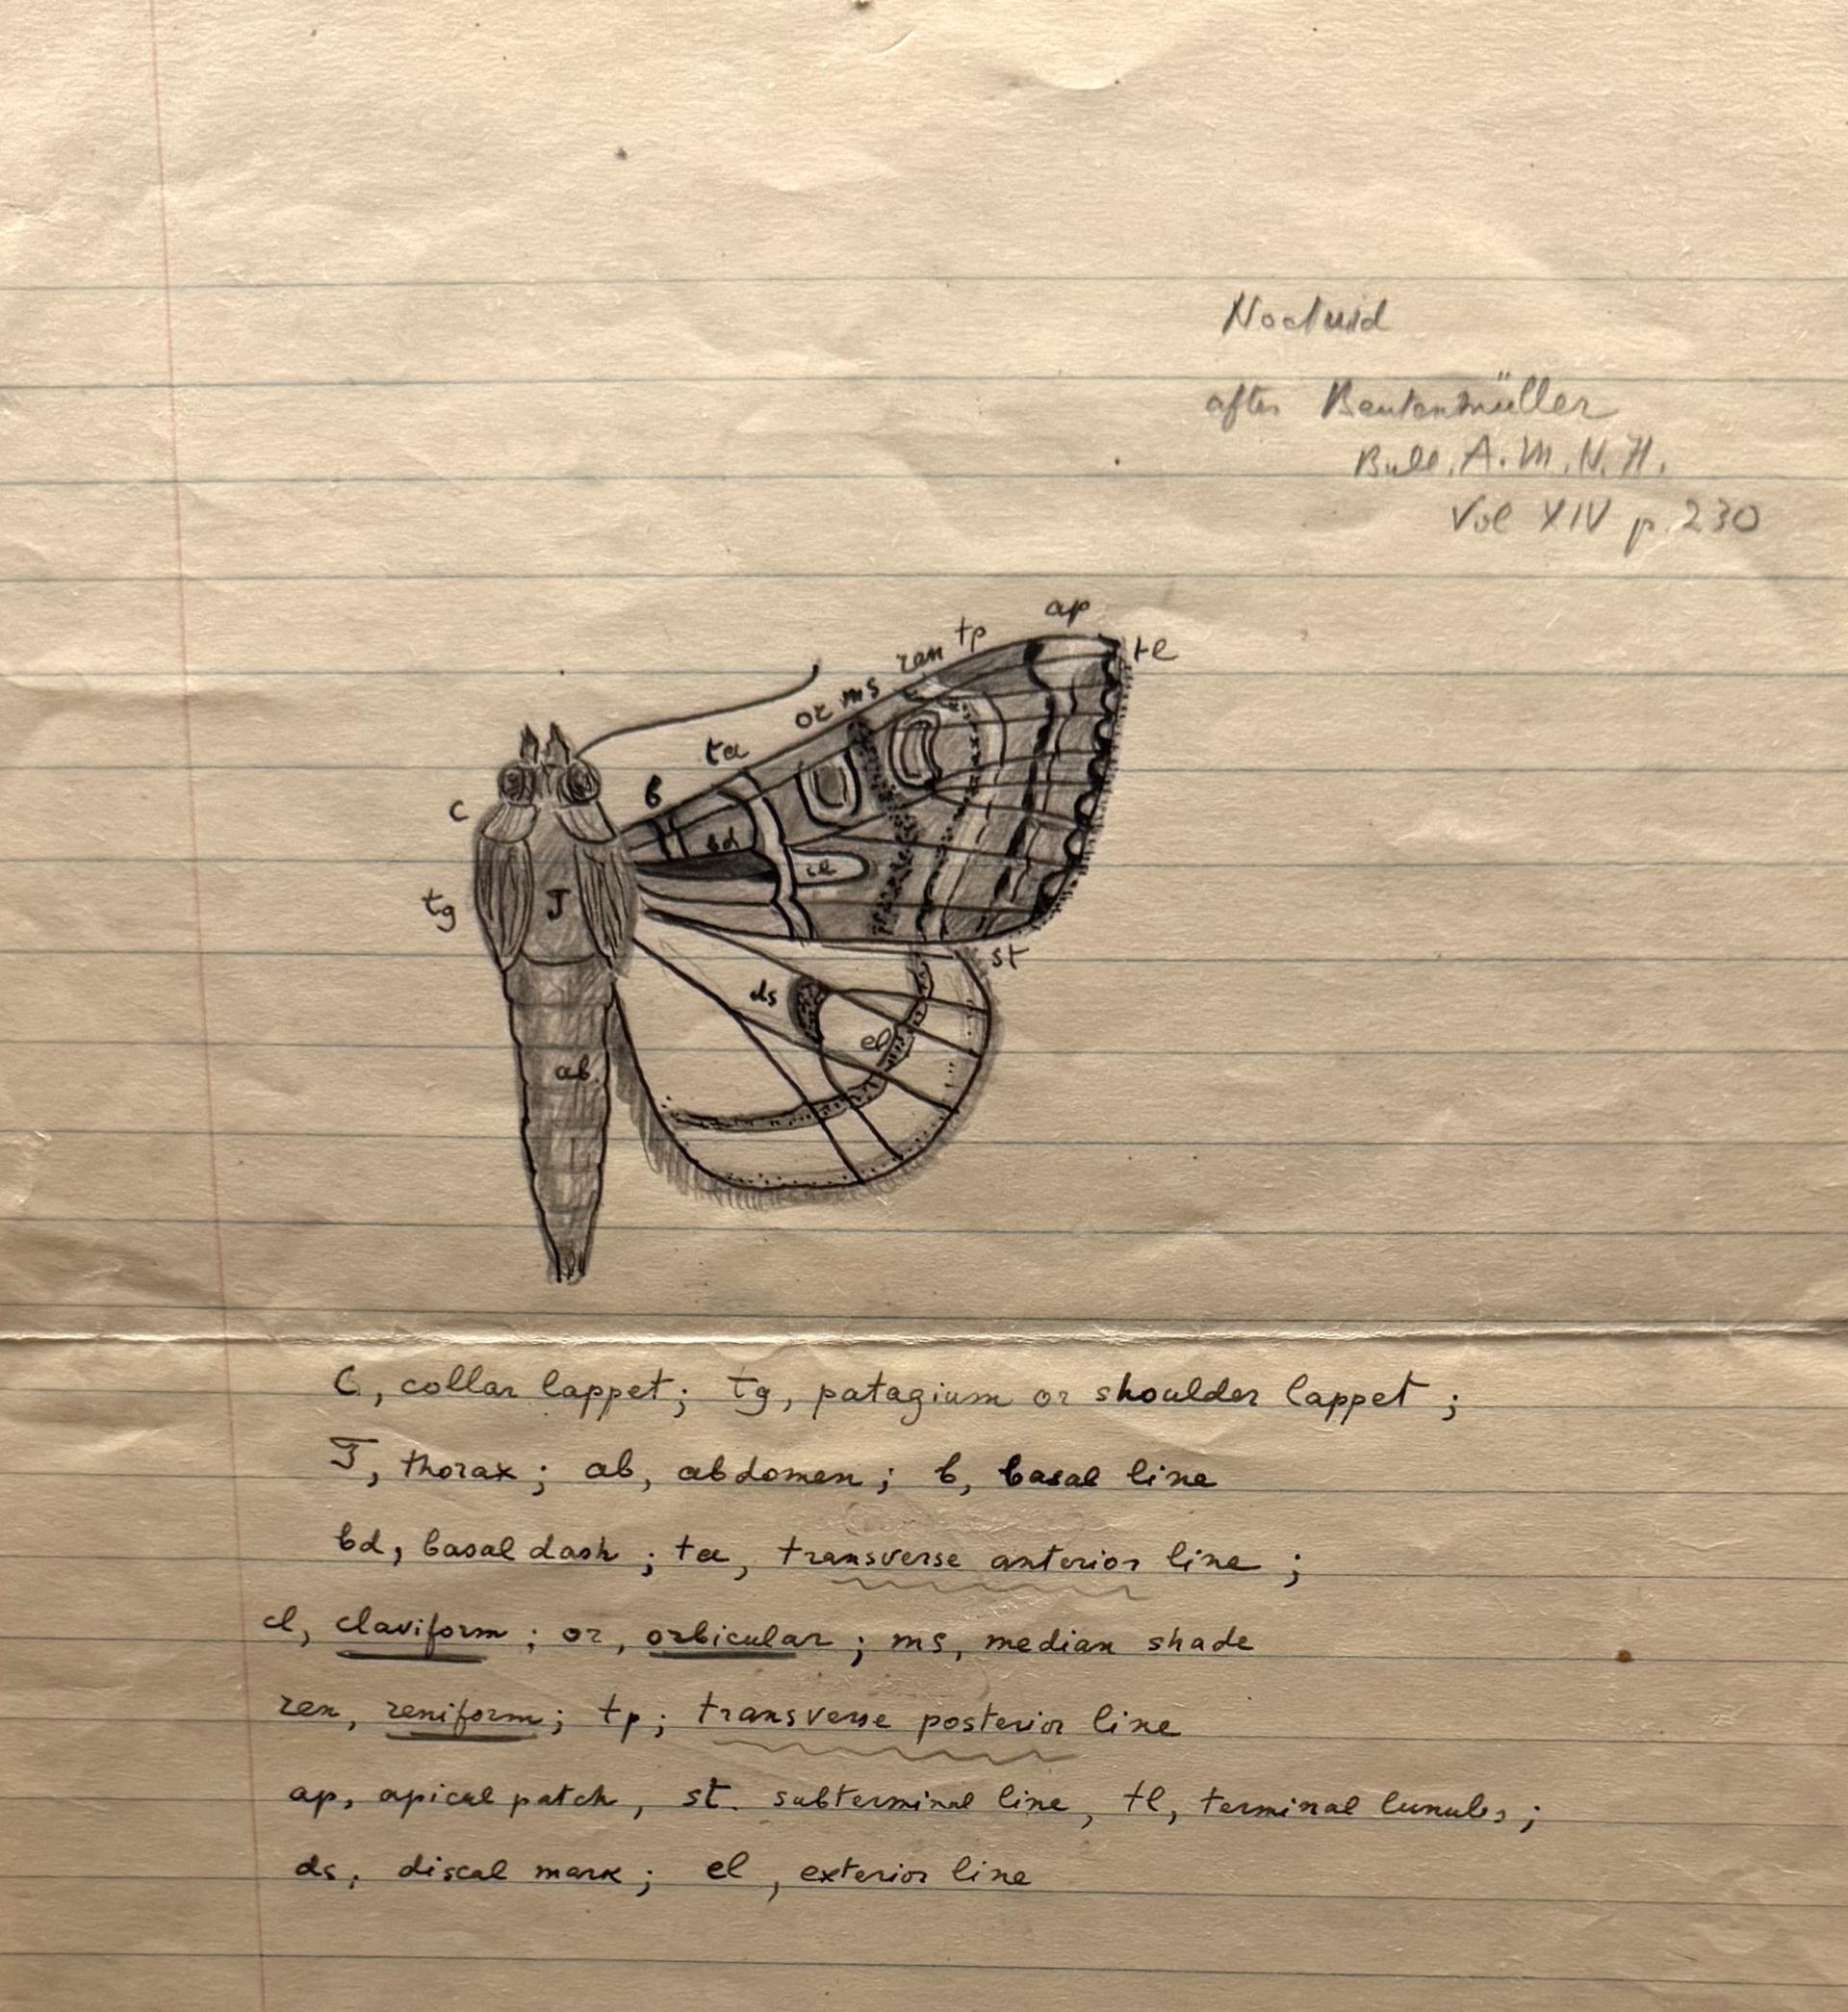 Noctuid
after Beutenmüller
Bull. A.M.N.H.
Vol XIV p. 230
ap
tp
tl
ren
ms
or
ta
b
c
bd
cl
tg
T
st
ds
el
ab.
C, collar lappet; tg, patagium or shoulder lappet;
T, thorax; ab, abdomen; b, basal line
bd, basal dash; ta, transverse anterior line;
cl, claviform; or, orbicular; ms, median shade
ren, reniform; tp; transverse posterior line
ap, apical patch, st. subterminal line, tl, terminal lunules;
ds, discal mark; el, exterior line